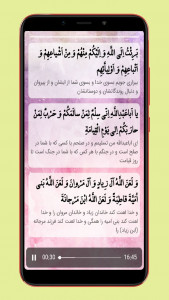 بَرِئْتُ اِلَی اللّٰهِ وَ اِلَیْکُمْ مِنْهُمْ وَ مِنْ اَشْیاعِهِمْ وَ
اَتْباعِهِمْ وَ اَوْلِیاَّئِهِمْ
بیزاری جویم بسوی خدا و بسوی شما از ایشان و از پیروان
و دنبال روندگانشان و دوستانشان
یا اَباعَبْدِاللّٰهِ اِنّی سِلْمٌ لِمَنْ سالَمَکُمْ وَ حَرْبٌ لِمَنْ
حارَبَکُمْ اِلی یَوْمِ الْقِیامَةِ
ای اباعبدالله من تسلیمم و در صلحم با کسی که با شما در
صلح است و در جنگم با هر کس که با شما در جنگ است تا
روز قیامت
وَ لَعَنَ اللّٰهُ آلَ زِیادٍ وَ آلَ مَرْوانَ وَ لَعَنَ اللّٰهُ بَنی
اُمَیَّةَ قاطِبَةً وَ لَعَنَ اللّٰهُ ابْنَ مَرْجانَةَ
و خدا لعنت کند خاندان زیاد و خاندان مروان را و خدا
لعنت کند بنی امیه را همگی و خدا لعنت کند فرزند مرجانه
(ابن زیاد) را
00:30 16:45